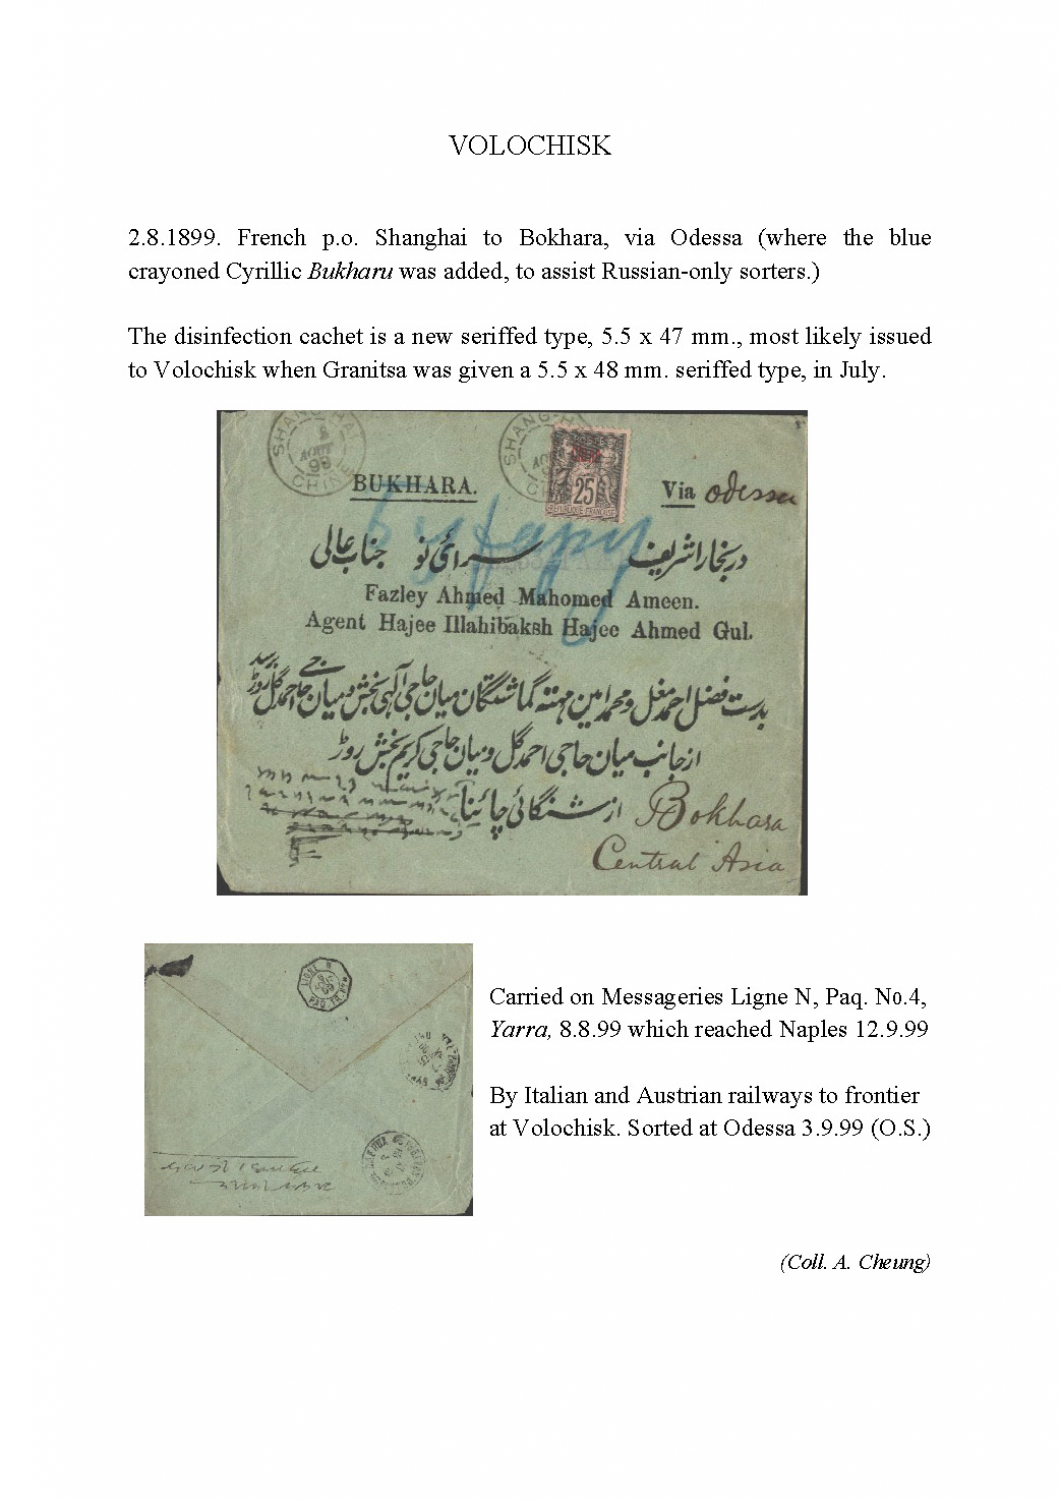 VOLOCHISK
2.8.1899. French p.o. Shanghai to Bokhara, via Odessa (where the blue
crayoned Cyrillic Bukharu was added, to assist Russian-only sorters.)
The disinfection cachet is a new seriffed type, 5.5 x 47 mm., most likely issued
to Volochisk when Granitsa was given a 5.5 x 48 mm. seriffed type, in July.
SHANG-HAI
AOUT
99
CHINE
SHANG-HAI
25
REPUBLIQUE FRANÇAISE
BUKHARA.
Via Odessa
Бухару
در بخارا شریف سرائی نو جناب عالی
Fazley Ahmed Mahomed Ameen.
Agent Hajee Illahibaksh Hajee Ahmed Gul.
بدست فضل احمد مغل و محمد امین مہتہ گماشتگان میان حاجی آلہی بخش و میان حاجی احمد گل روڑ برسد
از جانب میان حاجی احمد گل و میان حاجی کریم بخش روڑ
از شنگائی چائینا
Bokhara
Central Asia
LIGNE N
PAQ. FR. Nº4
Carried on Messageries Ligne N, Paq. No.4,
Yarra, 8.8.99 which reached Naples 12.9.99
By Italian and Austrian railways to frontier
at Volochisk. Sorted at Odessa 3.9.99 (O.S.)
(Coll. A. Cheung)